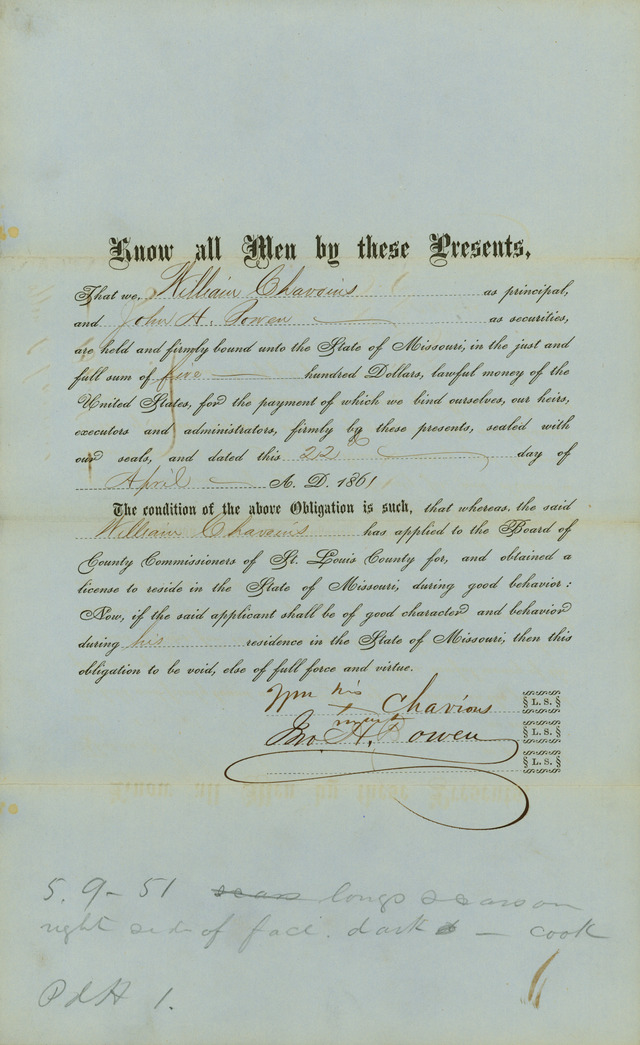 Know all Men by these Presents,
That we, William Chavoins as principal,
and John H. Bowen as securities,
are held and firmly bound unto the State of Missouri, in the just and
full sum of five hundred Dollars, lawful money of the
United States, for the payment of which we bind ourselves, our heirs,
executors and administrators, firmly by these presents, sealed with
our seals, and dated this 22 day of
April A. D. 1861
The condition of the above Obligation is such, that whereas, the said
William Chavoins has applied to the Board of
County Commissioners of St. Louis County for, and obtained a
license to reside in the State of Missouri, during good behavior:
Now, if the said applicant shall be of good character and behavior
during his residence in the State of Missouri, then this
obligation to be void, else of full force and virtue.
Wm his Chavious § L. S. §
Jno. H. Bowen § L. S. §
§ L. S. §
5. 9 - 51 scar long scar on
right side of face. dark - cook
Pd 1.